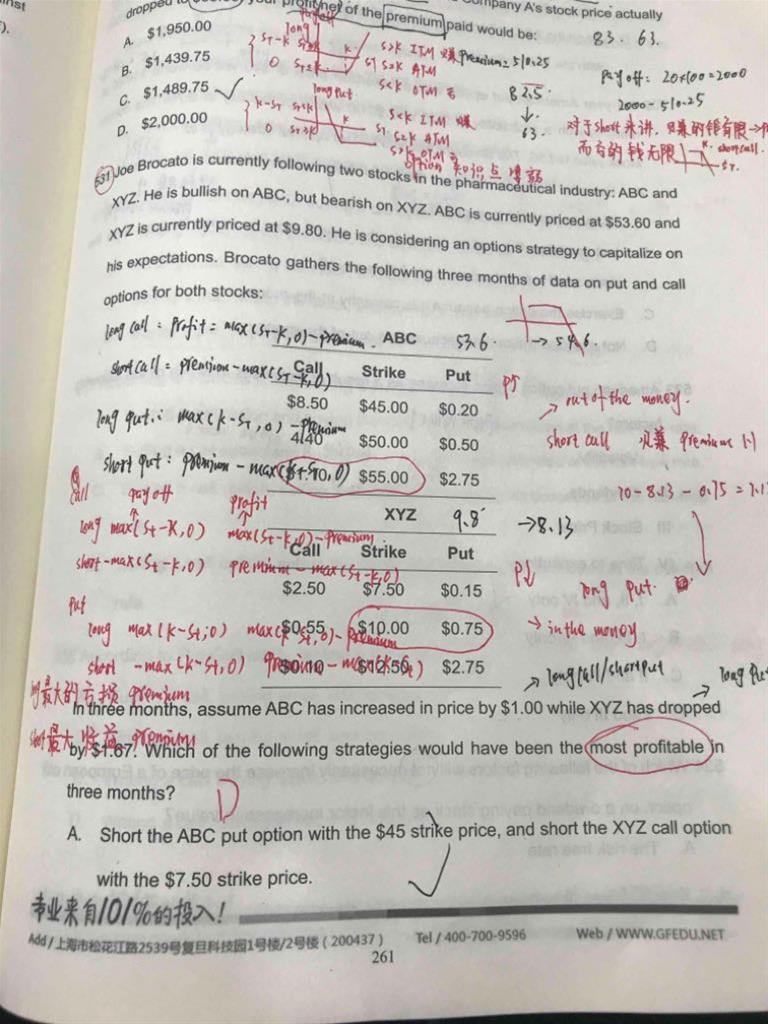 ompany A's stock price actually
dropped to your profit (net of the premium paid would be: 83. 63.
A. $1,950.00
B. $1,439.75
C. $1,489.75
D. $2,000.00
long
S>K ITM 赚 premium = 510.25
S=K ATM
S<K OTM 亏
pay off: 20×100=2000
2000-510.25
82.5
↓
63.
long put
S<K ITM 赚
S=K ATM
S>K OTM 亏
对于short来讲,只赚的钱有限
而亏的钱无限
short call.
531 Joe Brocato is currently following two stocks in the pharmaceutical industry: ABC and
XYZ. He is bullish on ABC, but bearish on XYZ. ABC is currently priced at $53.60 and
XYZ is currently priced at $9.80. He is considering an options strategy to capitalize on
his expectations. Brocato gathers the following three months of data on put and call
options for both stocks:
long call: profit = max(ST-K,0)-premium. ABC 53.6 → 54.6.
short call = premium - max(ST-K,0)
Call Strike Put
$8.50 $45.00 $0.20
long put: max(K-ST,0)-premium
4.40 $50.00 $0.50
short put: premium - max(K-ST,0)
$55.00 $2.75
P↑
→ out of the money.
short call 只赚 premium
10-8.13-0.75=1.1
call pay off profit
long max(ST-K,0) max(ST-K,0)-premium
short -max(ST-K,0) premium - max(ST-K,0)
XYZ 9.8 → 8.13
Call Strike Put
$2.50 $7.50 $0.15
P↓ long put.
put
long max(K-ST,0) max(K-ST,0)-premium
$0.55 $10.00 $0.75
→ in the money
short -max(K-ST,0) premium - max(K-ST)
$0.10 $12.50 $2.75
→ long call/short put
long put
最大的亏损 premium
In three months, assume ABC has increased in price by $1.00 while XYZ has dropped
short最大收益 premium
by $1.67. Which of the following strategies would have been the most profitable in
three months?
D
A. Short the ABC put option with the $45 strike price, and short the XYZ call option
with the $7.50 strike price.
专业来自101%的投入!
Add / 上海市松花江路2539号复旦科技园1号楼/2号楼(200437) Tel / 400-700-9596 Web / WWW.GFEDU.NET
261